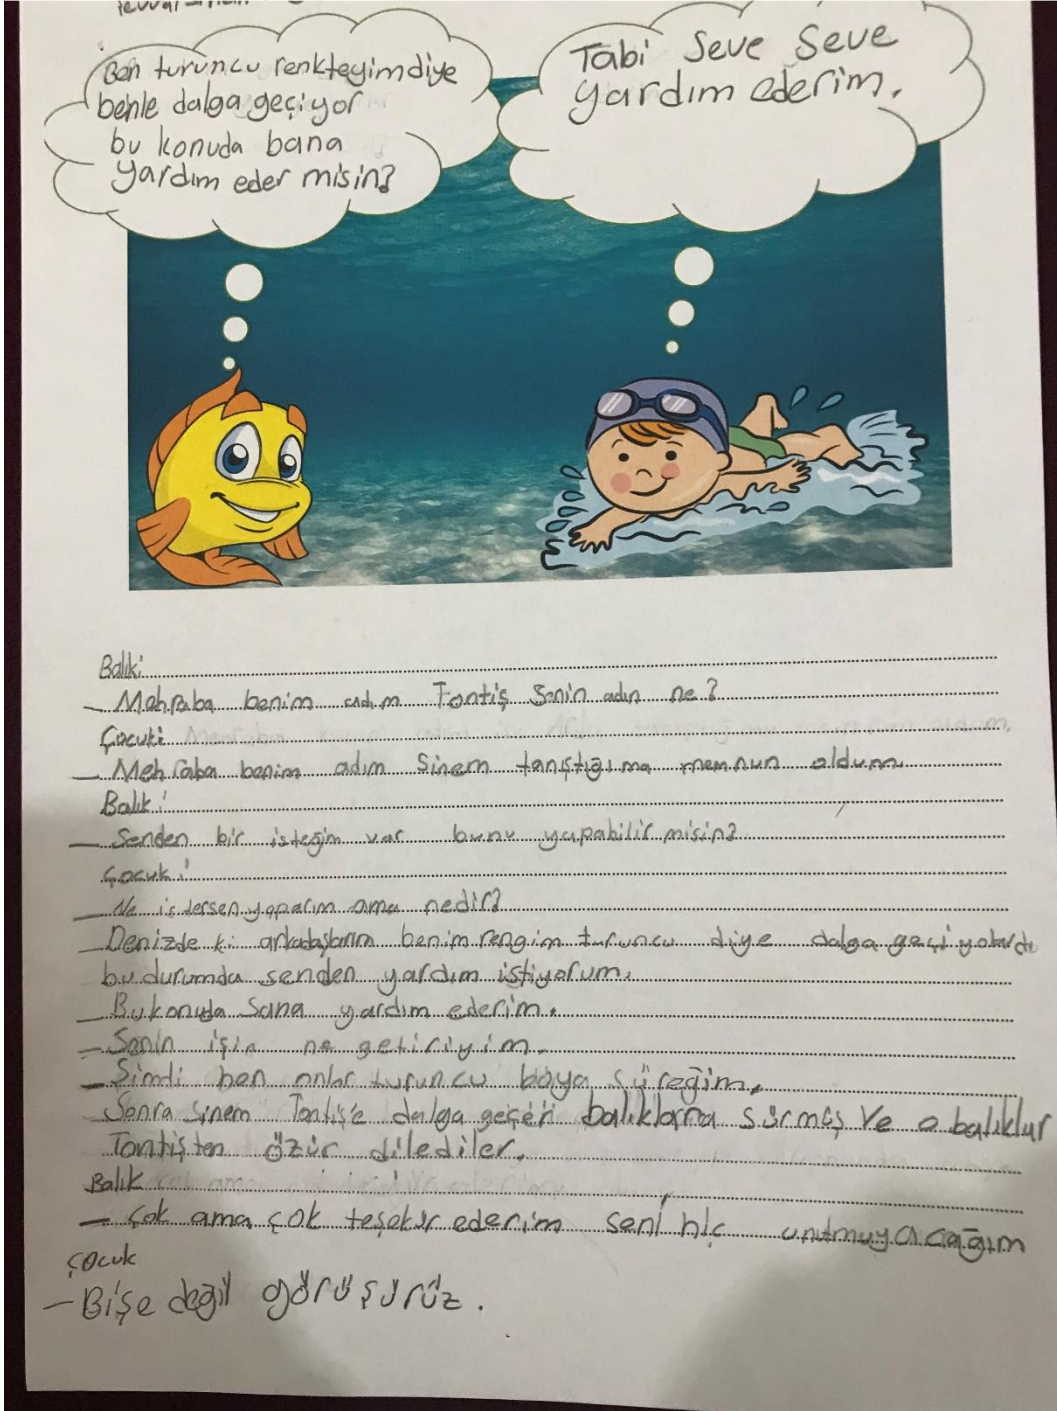 Ben turuncu renkteyimdiye
benle dalga geçiyor
bu konuda bana
yardım eder misin?
Tabi seve seve
yardım ederim.
Balık:
— Mehraba benim adım Tontiş senin adın ne?
Çocuk:
— Mehraba benim adım Sinem tanıştığıma memnun oldum
Balık:
— Senden bir isteğim var bunu yapabilir misin?
Çocuk:
— Ne istersen yaparım ama nedir?
— Denizde ki arkadaşlarım benim rengim turuncu diye dalga geçiyolardı
bu durumda senden yardım istiyorum.
— Bu konuda sana yardım ederim.
— Senin için ne getiriyim.
— Şimdi ben onlar turuncu boya süreğim.
Sonra Sinem Tontiş'e dalga geçen balıklara sürmüş ve o balıklar
Tontişten özür dilediler.
Balık
— Çok ama çok teşekür ederim seni hiç unutmuyacağım
Çocuk
— Bişe değil görüşürüz.